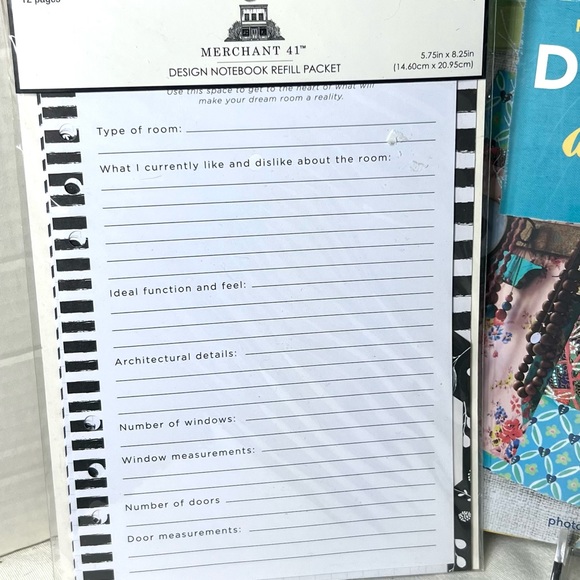 12 pages
MERCHANT 41™
DESIGN NOTEBOOK REFILL PACKET
5.75in x 8.25in
(14.60cm x 20.95cm)
Use this space to get to the heart of what will
make your dream room a reality.
Type of room:
What I currently like and dislike about the room:
Ideal function and feel:
Architectural details:
Number of windows:
Window measurements:
Number of doors
Door measurements:
D
a
photo